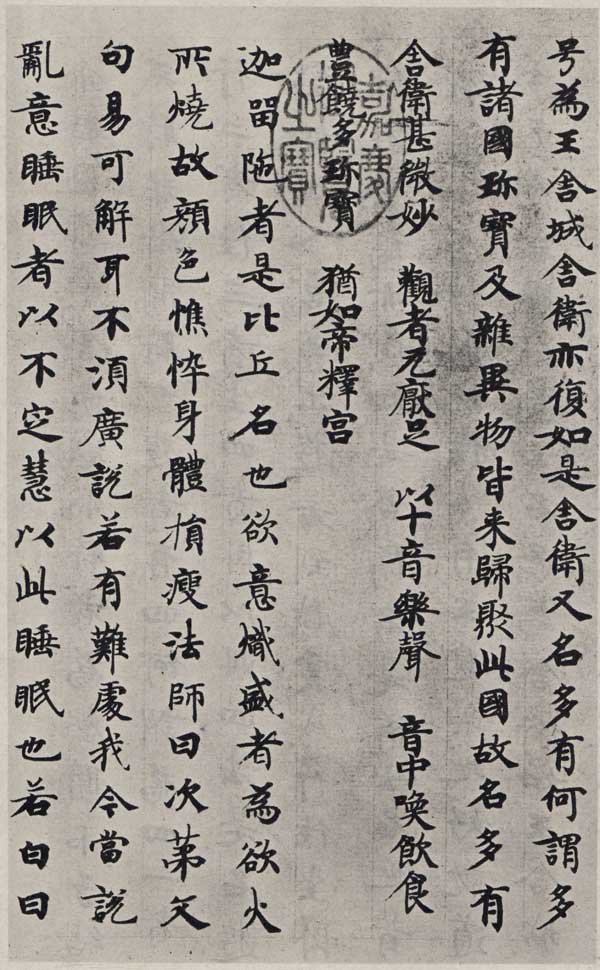 号為王舍城舍衛亦復如是舍衛又名多有何謂多
有諸國珎寳及雜異物皆来歸聚此國故名多有
舍衛甚微妙 觀者无厭足 以十音樂聲 音中喚飲食
豊饒多珎寳 猶如帝釋宫
迦留陁者是比丘名也欲意熾盛者為欲火
所燒故顔色憔悴身體損瘦法師曰次苐文
句易可解耳不湏廣說若有難處我今當說
亂意睡眠者以不定慧以此睡眠也若白曰